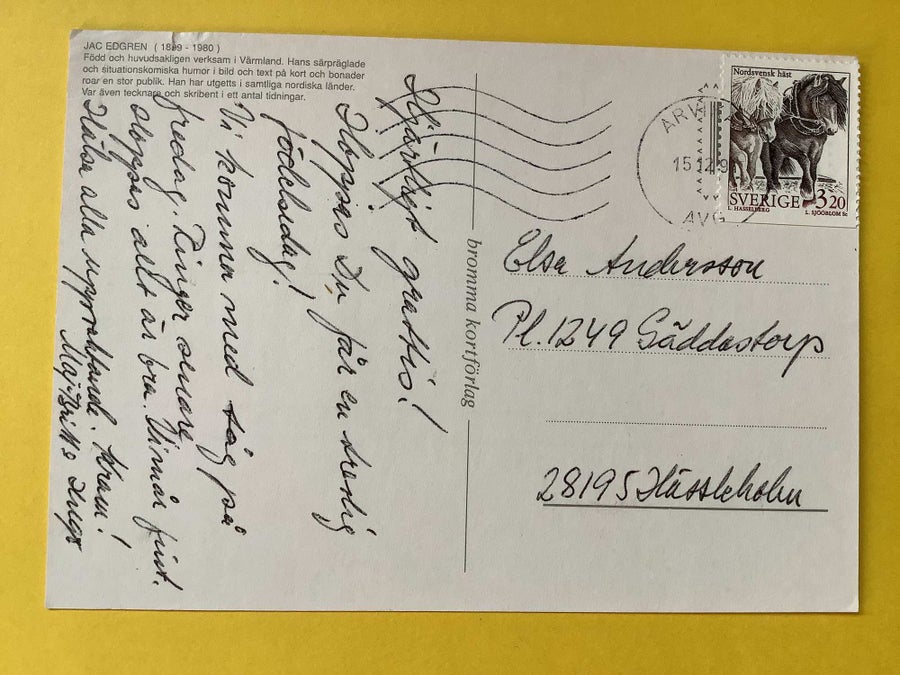 JAC EDGREN ( 1899 - 1980 )
Född och huvudsakligen verksam i Värmland. Hans särpräglade
och situationskomiska humor i bild och text på kort och bonader
roar en stor publik. Han har utgetts i samtliga nordiska länder.
Var även tecknare och skribent i ett antal tidningar.
Hjärtligt grattis!
Hoppas Du får en trevlig
födelsedag!
Vi kommer med tåg på
fredag. Ringer senare
Hoppas allt är bra. Vi mår fint.
Hälsa alla uppvaktande. Kram!
Maj-Britt o
bromma kortförlag
Nordsvensk häst
SVERIGE 3.20
I. HASSELBERG L. SJÖÖBLOM Sc
ARV
15.12.9
AVG
Elsa Andersson
Pl. 1249 Gäddastorp
28195 Hässleholm